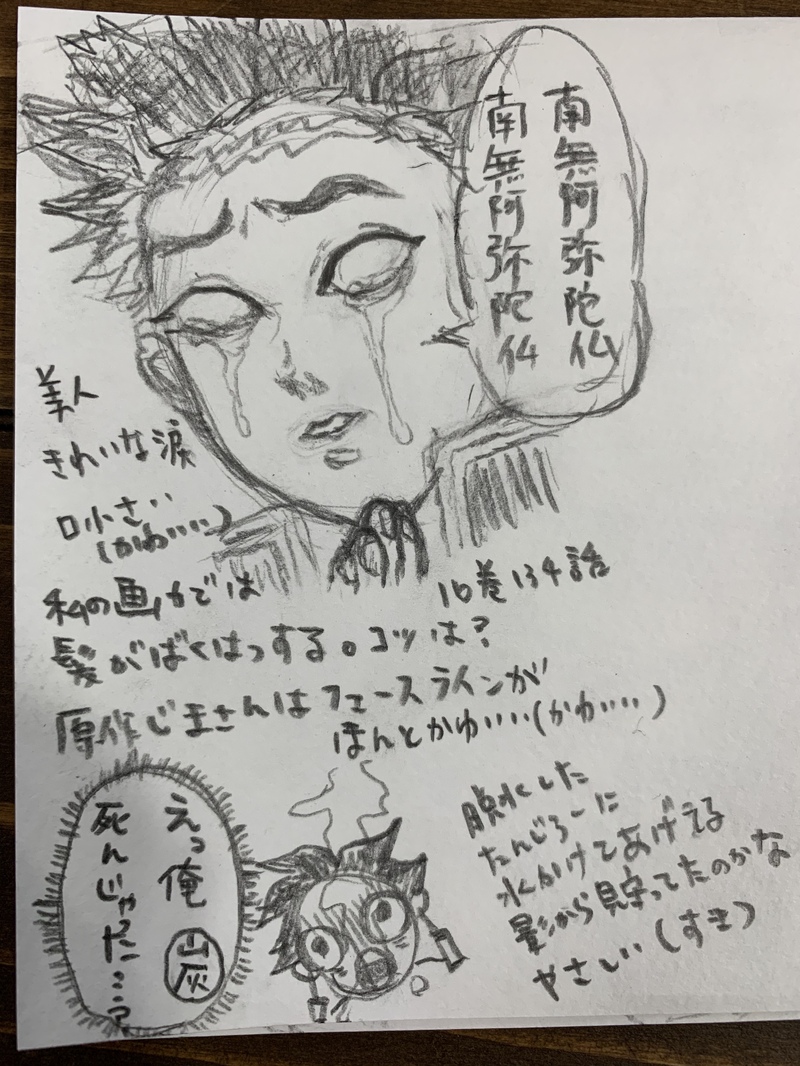 南無阿弥陀仏
南無阿弥陀仏
美人
きれいな涙
口小さい
(かわいい)
16巻134話
私の画力では
髪がばくはつする。コツは?
原作じまさんはフェースラインが
ほんとかわいい(かわいい)
えっ俺
死んじゃった…?
炭
脱水した
たんじろーに
水かけてあげてる
影から見守ってたのかな
やさしい(すき)